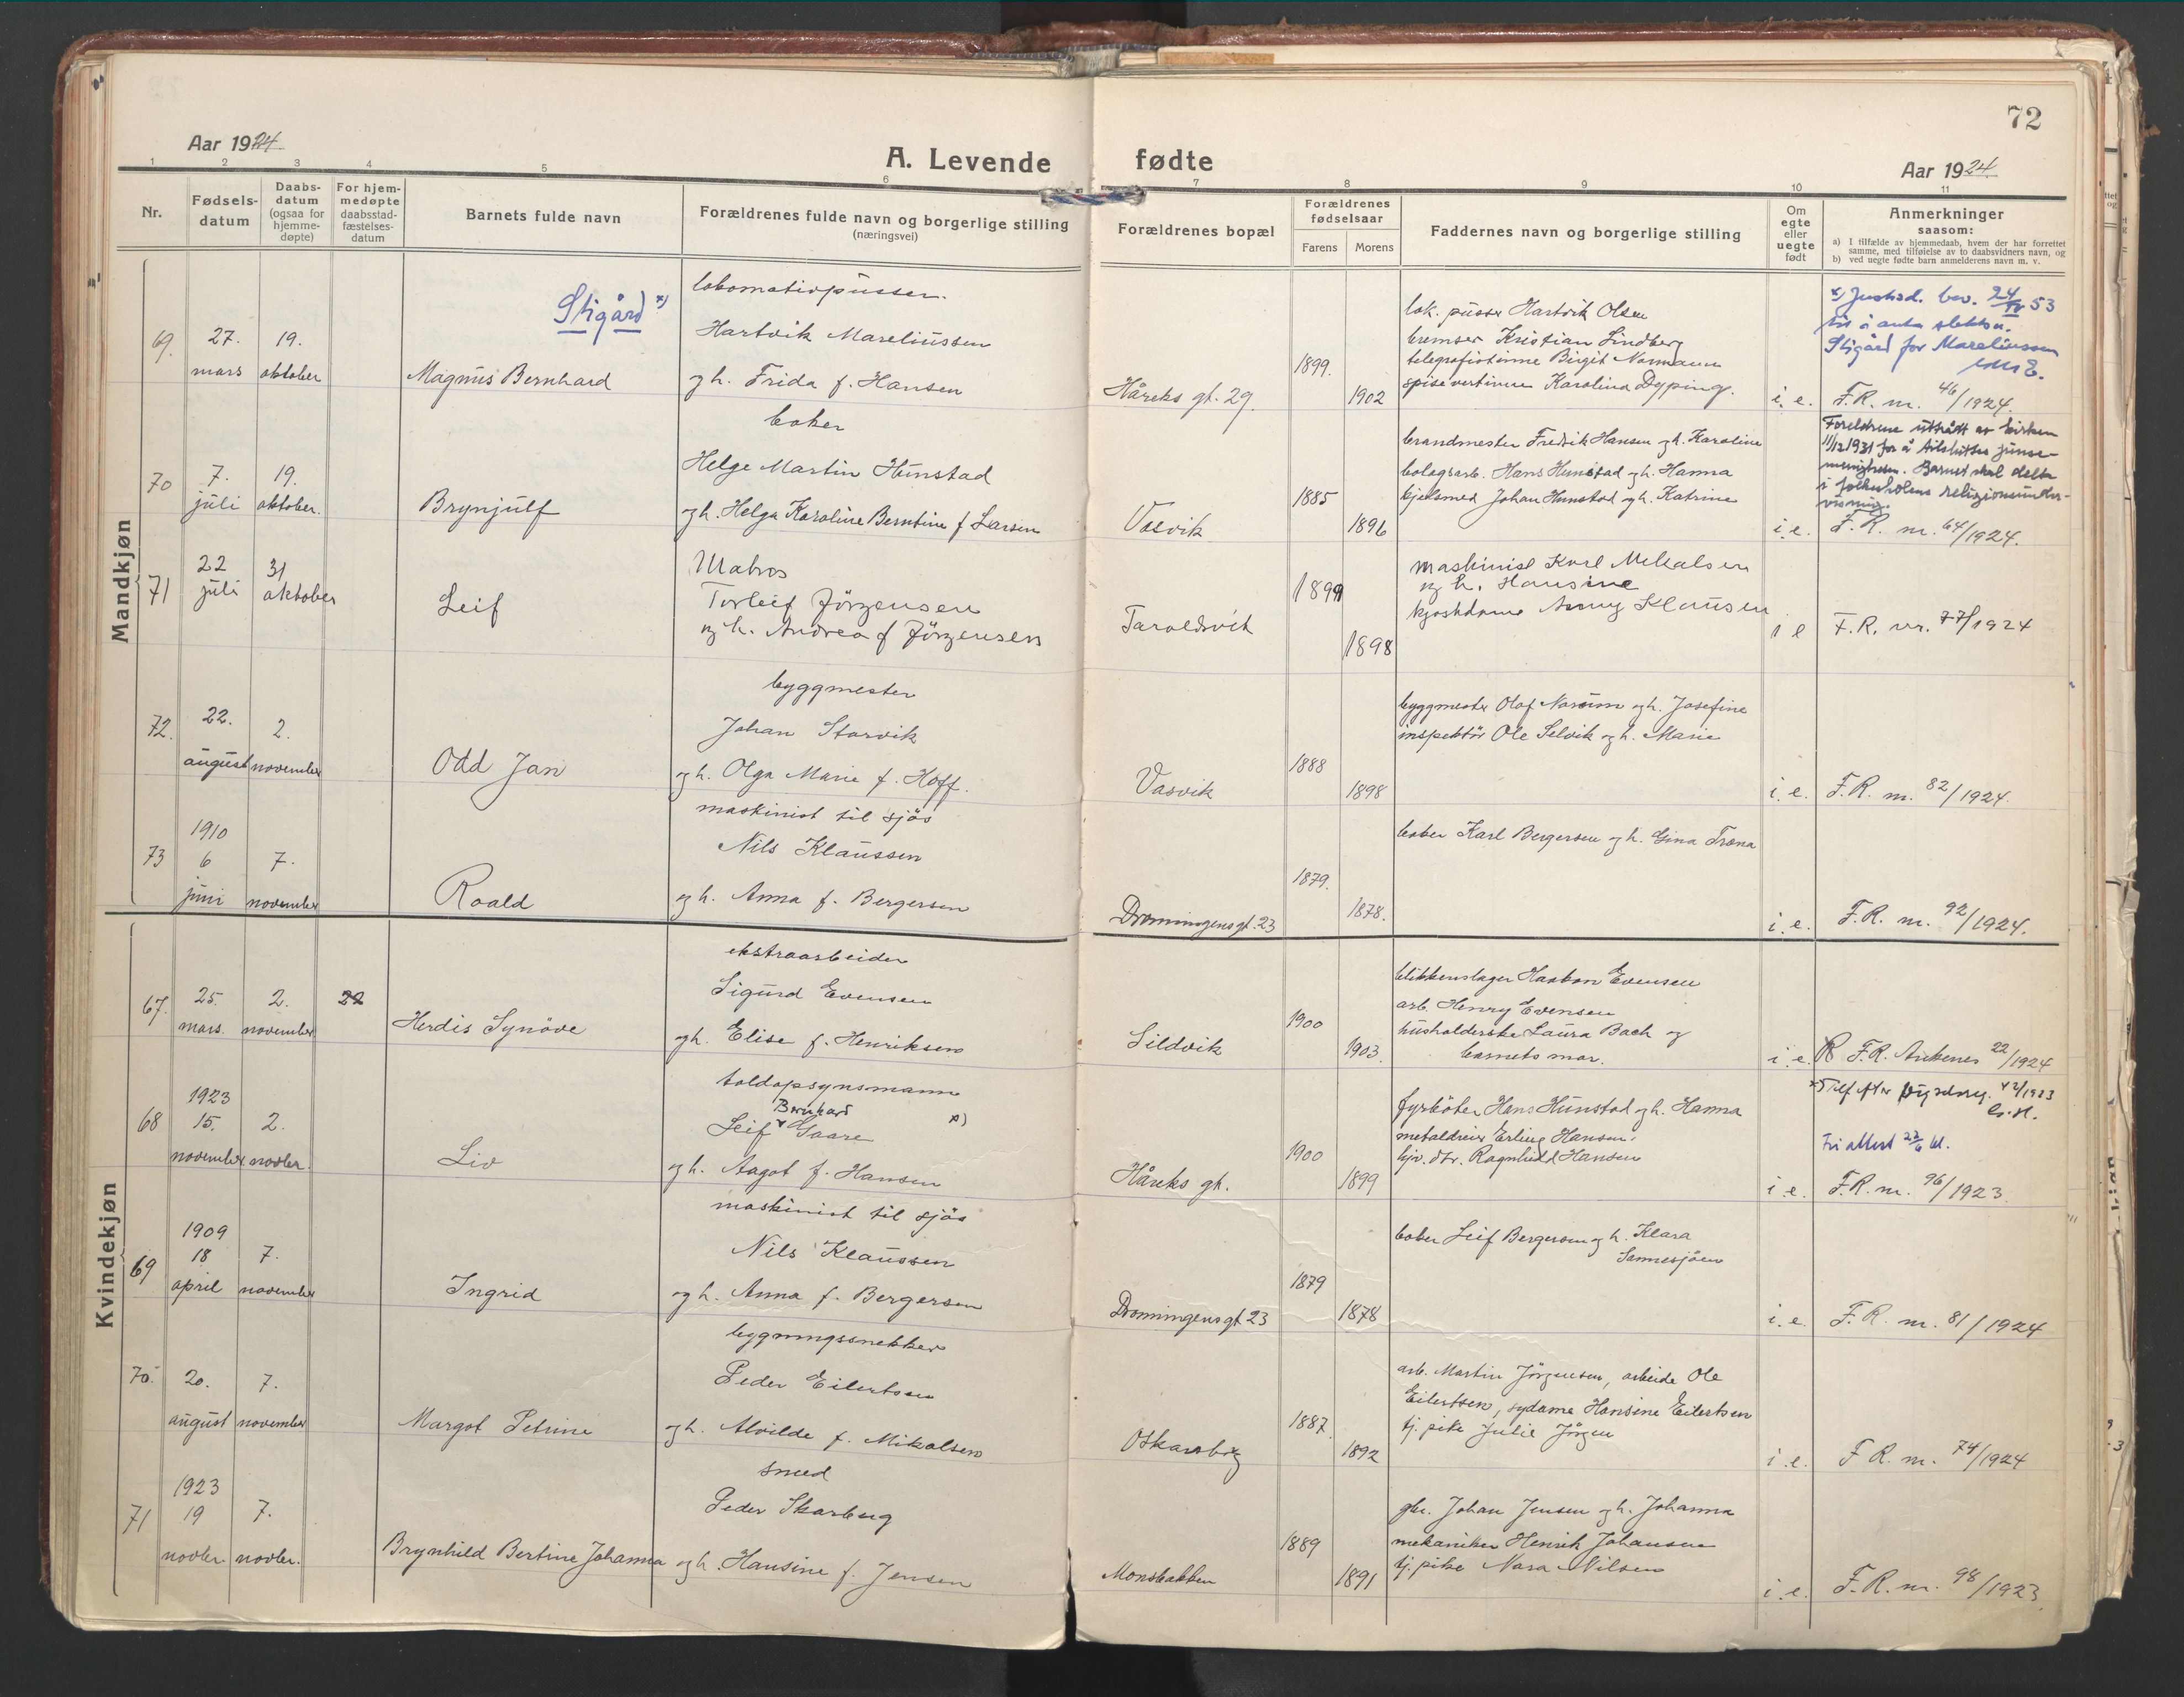 72
Aar 1924.
A. Levende fødte
Aar 1924.
1 2 3 4 5 6 7 8 9 10 11
Nr.
Fødsels-
datum
Daabs-
datum
(ogsaa for
hjemme-
døpte)
For hjem-
medøpte
daabsstad-
fæstelses-
datum
Barnets fulde navn
Forældrenes fulde navn og borgerlige stilling
(næringsvei)
Forældrenes bopæl
Forældrenes
fødselsaar
Farens
Morens
Faddernes navn og borgerlige stilling
Om
egte
eller
uegte
født
Anmerkninger
saasom:
a) I tilfælde av hjemmedaab, hvem der har forrettet
samme, med tilføielse av to daabsvidners navn, og
b) ved uegte fødte barn anmelderens navn m. v.
Mandkjøn
69.
27.
mars
19.
oktober
Stigård x)
Magnus Bernhard
lokomotivpusser.
Hartvik Mareliussen
og h. Frida f. Hansen
Håreks gt. 29.
1899.
1902
lok. pusser Hartvik Olsen
bremser Kristian Lindberg
telegrafistinne Birgit Normann
spisevertinne Karolina Dyping.
i. e.
x) Justisd. bev. 53
til å anta slektsn.
Stigård for Mareliussen
F.R. nr. 46/1924.
70
7.
juli
19.
oktober.
Brynjulf
Helge Martin Hunstad
og h. Helga Karoline Berntine f Larsen
Vasvik
1885
1896
brandmester Fredrik Hansen og h. Karoline
bolagsarb. Hans Hunstad og h. Hanna
kjelsmed Johan Hunstad og h. Katrine
i. e.
Foreldrene utrådt av kirken
11/12 1931 for å tilslutte pinse-
menigheten. Barnet skal delta
i folkeskolens religionsunder-
visning.
F. R. nr. 64/1924.
71
22
juli
31
oktober
Leif
Matros
Torleif Jörgensen
og h. Andrea f Jörgensen
Taraldsvik
1899
1898
maskinist Karl Mikalsen
og h. Hansine
kjoskdame Anny Klausen
i e
F.R. nr. 77/1924
72.
22.
august
2.
november
Odd Jan
byggmester
Johan Storvik
og h. Olga Marie f. Hoff.
Vasvik
1888
1898
byggmester Olaf Norum og h. Josefine
inspektör Ole Selvik og h. Marie
i. e.
F.R. nr. 82/1924.
73
1910
6
juni
7.
november
Roald
maskinist til sjös
Nils Klaussen
og h. Anna f. Bergersen
Dronningensgt. 23
1879.
1878.
Karl Bergersen og h. Gina Træna
i. e.
F.R. nr. 92/1924.
Kvindekjøn
67.
25.
mars.
2.
november
22
Herdis Synöve
ekstraarbeider
Sigurd Evensen
og h. Elise f. Henriksen
Sildvik
1900
1903.
blikkenslager Haakon Evensen
arb. Henry Evensen
husholderske Laura Bach og
barnets mor.
i. e.
F.R. Ankenes 22/1924
68
1923
15.
november
2.
novbr.
Liv
toldopsynsmann
Bernhard
Leif Gaare x)
og h. Aagot f. Hansen
Håreks gt.
1900
1899
fyrböter Hans Hunstad og h. Hanna
metaldreier Erling Hansen.
hjv. dtr. Ragnhild Hansen
i. e.
F.R. nr. 96/1923.
69
1909
18
april
7.
november
Ingrid
maskinist til sjös
Nils Klaussen
og h. Anna f. Bergersen
Dronningensgt 23
1879
1878
Leif Bergersen og h. Klara
Sannesjöen
i. e.
F. R. nr. 81/1924
70.
20.
august
7.
november
Margot Petrine
bygningssnekker
Peder Eilertsen
og h. Alvilde f. Mikalsen
Oskarsborg
1887
1892
arb. Martin Jörgensen, arbeider Ole
Eilertsen, sydame Hansine Eilertsen
tj. pike Julie Jörgen
i. e.
F R. nr. 74/1924
71
1923
19
novbr.
7.
novbr.
Brynhild Bertine Johanna
smed
Peder Skarberg
og h. Hansine f. Jensen
Monsbakken
1889
1891
gbr. Johan Jensen og h. Johanna
mekaniker Henrik Johansen
tj. pike Nora Nilsen
i. e.
F. R. nr. 98/1923.